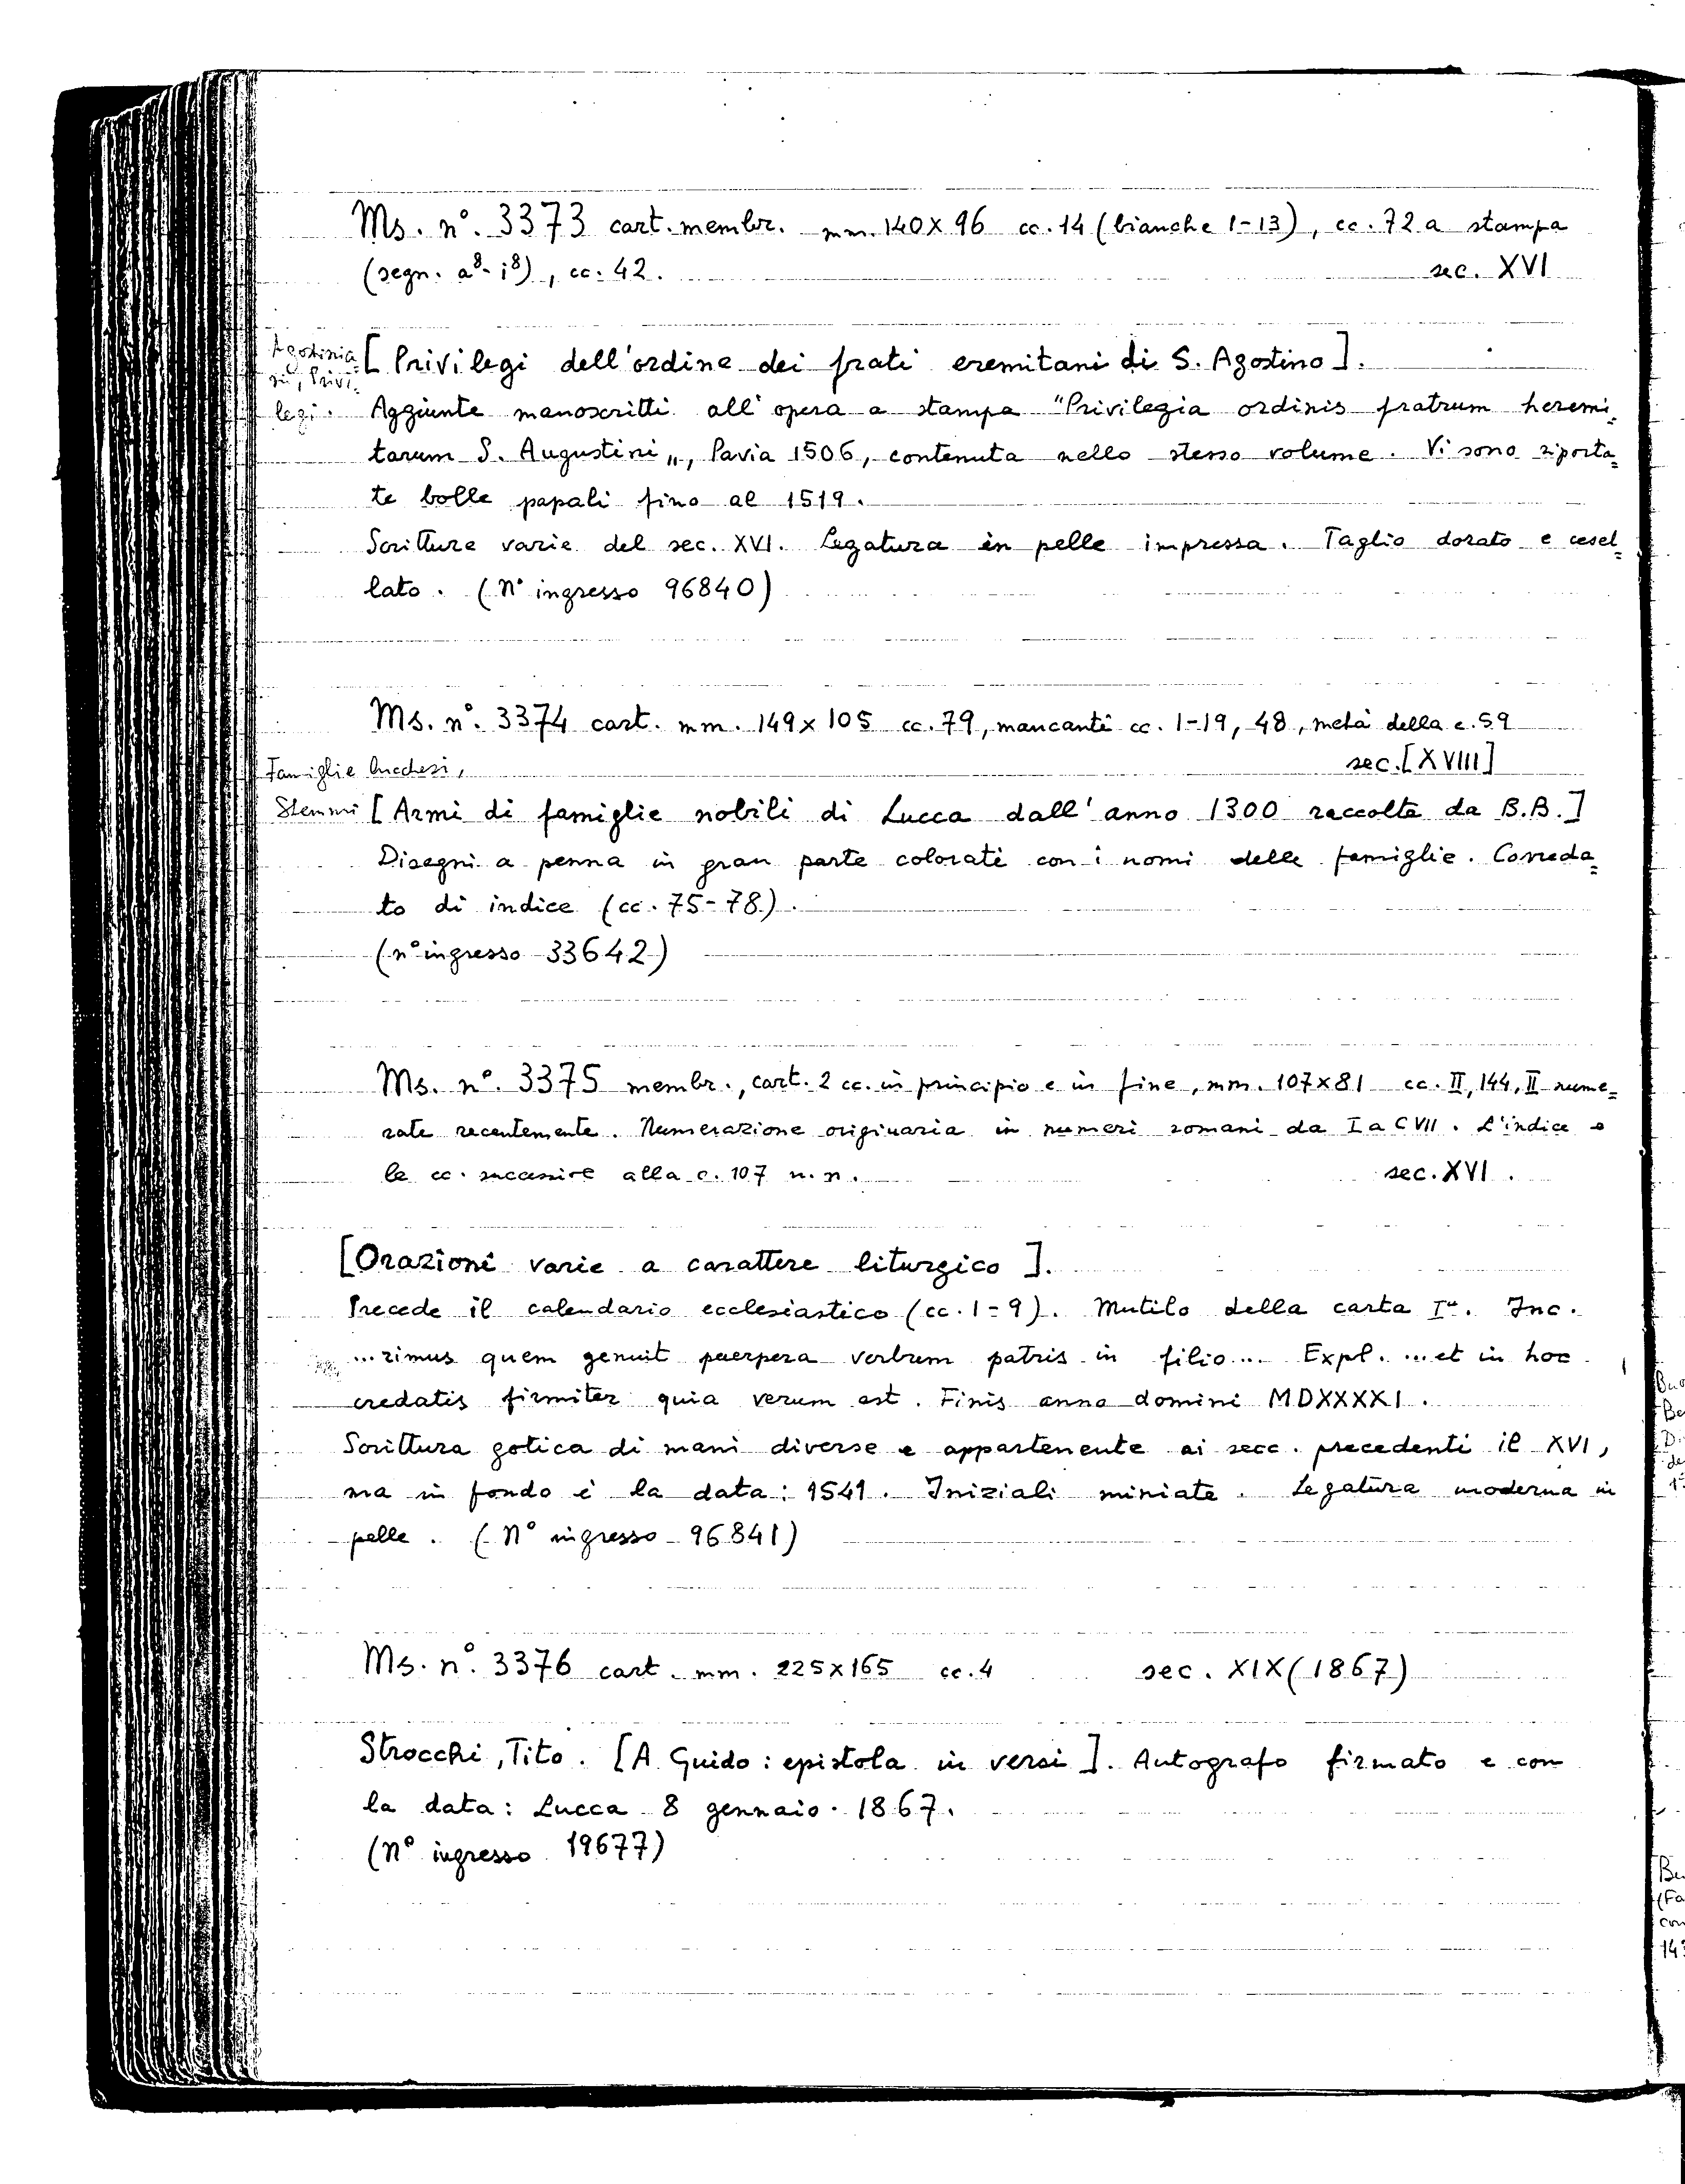 Ms. n°. 3373 cart. membr. mm. 140 X 96 cc. 14 (bianche 1-13), cc. 72 a stampa
(segn. a⁸- i⁸), cc. 42. sec. XVI
Agostinia=
ni, Privi=
legi.
[Privilegi dell'ordine dei frati eremitani di S. Agostino].
Aggiunte manoscritti all'opera a stampa "Privilegia ordinis fratrum heremi=
tarum S. Augustini„, Pavia 1506, contenuta nello stesso volume. Vi sono riporta=
te bolle papali fino al 1519.
Scritture varie del sec. XVI. Legatura in pelle impressa. Taglio dorato e cesel=
lato. (N° ingresso 96840)
Ms. n°. 3374 cart. mm. 149 x 105 cc. 79, mancanti cc. 1-19, 48, metà della c. 59
sec. [XVIII]
Famiglie lucchesi,
Stemmi
[Armi di famiglie nobili di Lucca dall'anno 1300 raccolte da B.B.]
Disegni a penna in gran parte colorati con i nomi delle famiglie. Correda=
to di indice (cc. 75-78).
(n° ingresso 33642)
Ms. n°. 3375 membr., cart. 2 cc. in principio e in fine, mm. 107x81 cc. II, 144, II nume=
rate recentemente. Numerazione originaria in numeri romani da I a CVII. L'indice e
le cc. successive alla c. 107 n. n. sec. XVI.
[Orazioni varie a carattere liturgico].
Precede il calendario ecclesiastico (cc. 1-9). Mutilo della carta Iª. Inc.
...rimus quem genuit puerpera verbum patris in filio... Expl. ...et in hoc
credatis firmiter quia verum est. Finis anno domini MDXXXXI.
Scrittura gotica di mani diverse e appartenente ai secc. precedenti il XVI,
ma in fondo è la data: 1541. Iniziali miniate. Legatura moderna in
pelle. (N° ingresso 96841)
Ms. n°. 3376 cart. mm. 225x165 cc. 4 sec. XIX (1867)
Strocchi, Tito. [A Guido: epistola in versi]. Autografo firmato e con
la data: Lucca 8 gennaio 1867.
(N° ingresso 19677)